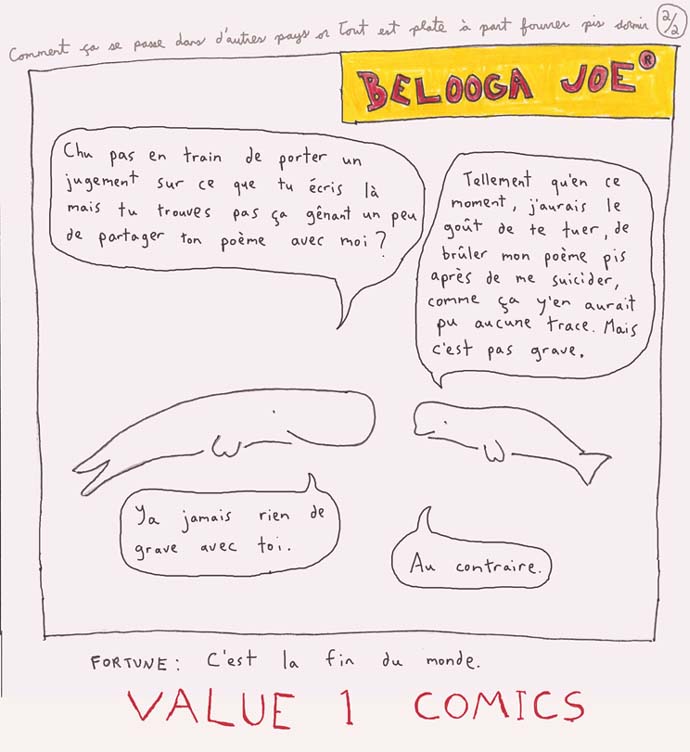 Comment ça se passe dans d'autres pays or Tout est plate à part fourrer pis dormir 2/2
BELOOGA JOE®
Chu pas en train de porter un
jugement sur ce que tu écris là
mais tu trouves pas ça gênant un peu
de partager ton poème avec moi?
Tellement qu'en ce
moment, j'aurais le
goût de te tuer, de
brûler mon poème pis
après de me suicider,
comme ça y'en aurait
pu aucune trace. Mais
c'est pas grave.
Ya jamais rien de
grave avec toi.
Au contraire.
FORTUNE: C'est la fin du monde.
VALUE 1 COMICS